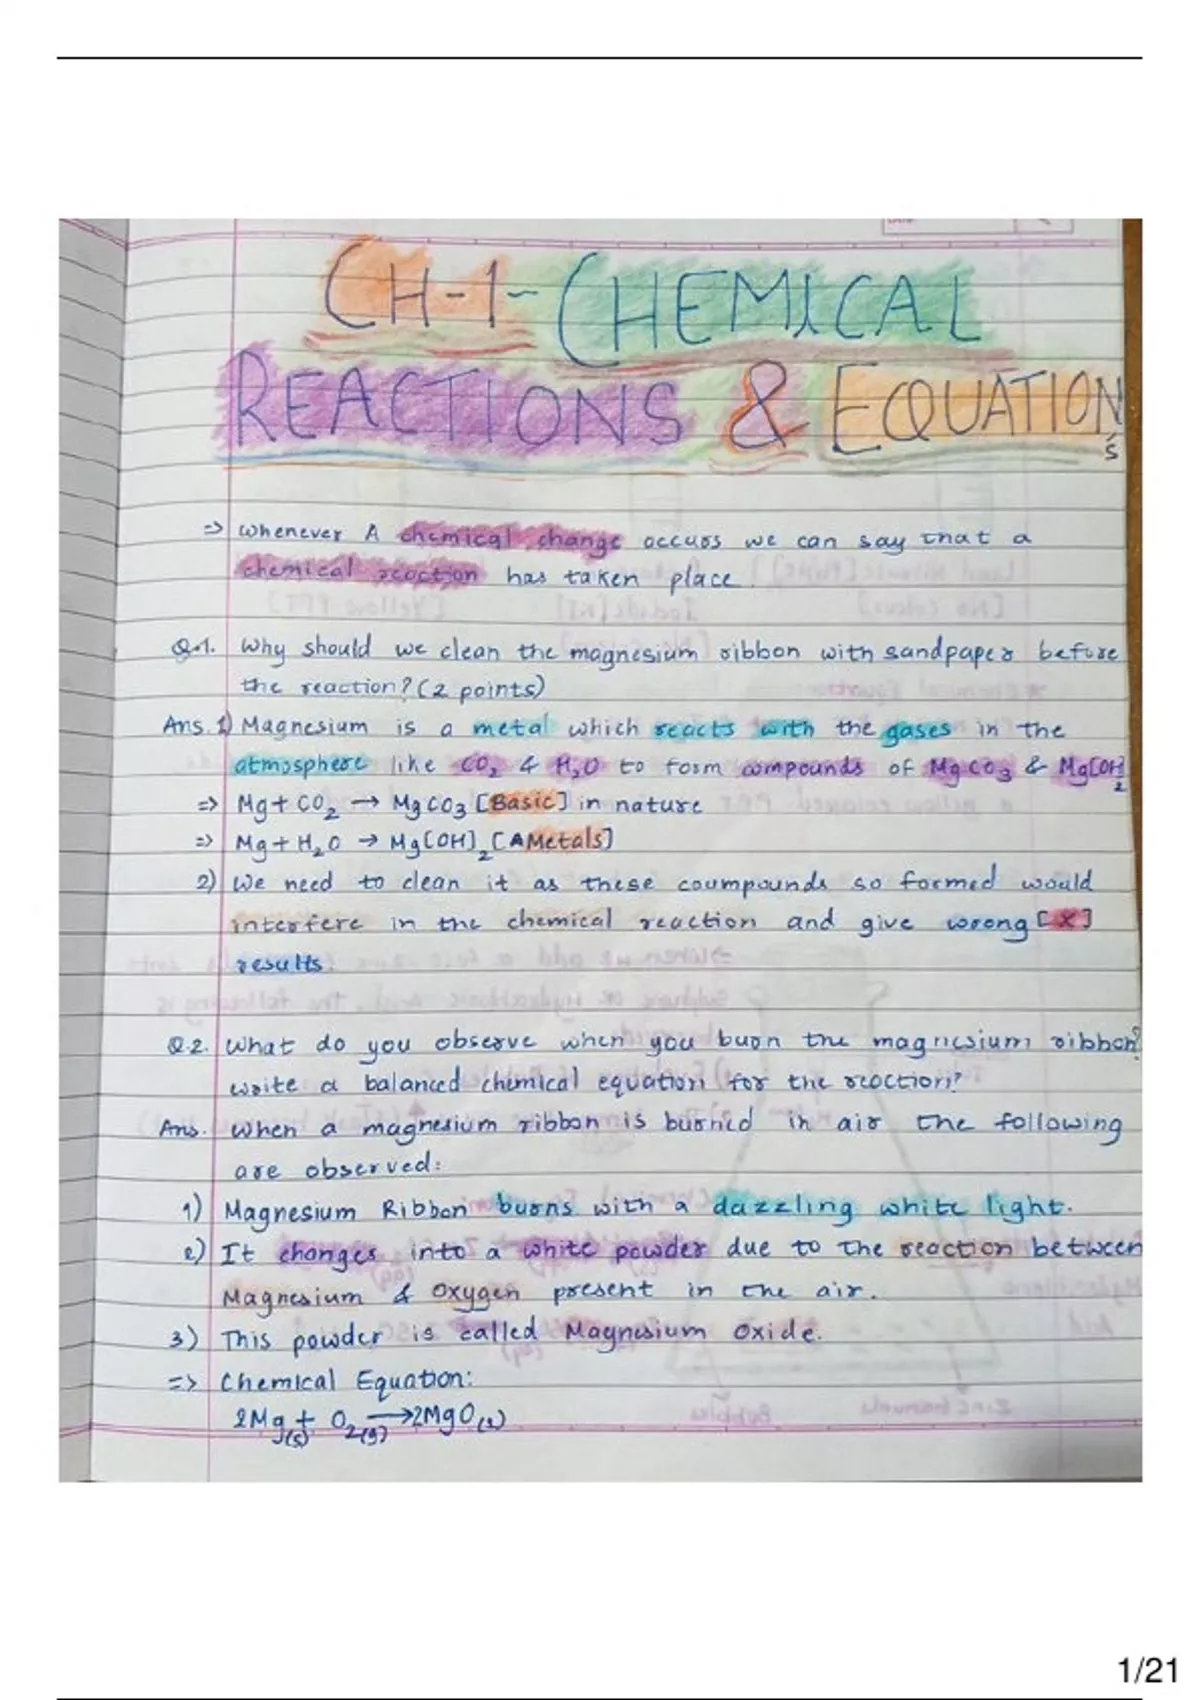 CH-1-CHEMICAL
REACTIONS & EQUATIONS
=> Whenever A chemical change occurs we can say that a
chemical reaction has taken place.
Q.1. Why should we clean the magnesium ribbon with sandpaper before
the reaction? (2 points)
Ans. 1) Magnesium is a metal which reacts with the gases in the
atmosphere like CO₂ & H₂O to form compounds of MgCO₃ & Mg[OH]₂
=> Mg + CO₂ → MgCO₃ [Basic] in nature
=> Mg + H₂O → Mg[OH]₂ [AMetals]
2) We need to clean it as these coumpounds so formed would
interfere in the chemical reaction and give wrong [X]
results.
Q.2. What do you observe when you burn the magnesium ribbon?
write a balanced chemical equation for the reaction?
Ans. When a magnesium ribbon is burned in air the following
are observed:
1) Magnesium Ribbon burns with a dazzling white light.
2) It changes into a white powder due to the reaction between
Magnesium & oxygen present in the air.
3) This powder is called Magnesium oxide.
=> Chemical Equation:
2Mg(s) + O₂(g) → 2MgO(s)
1/21